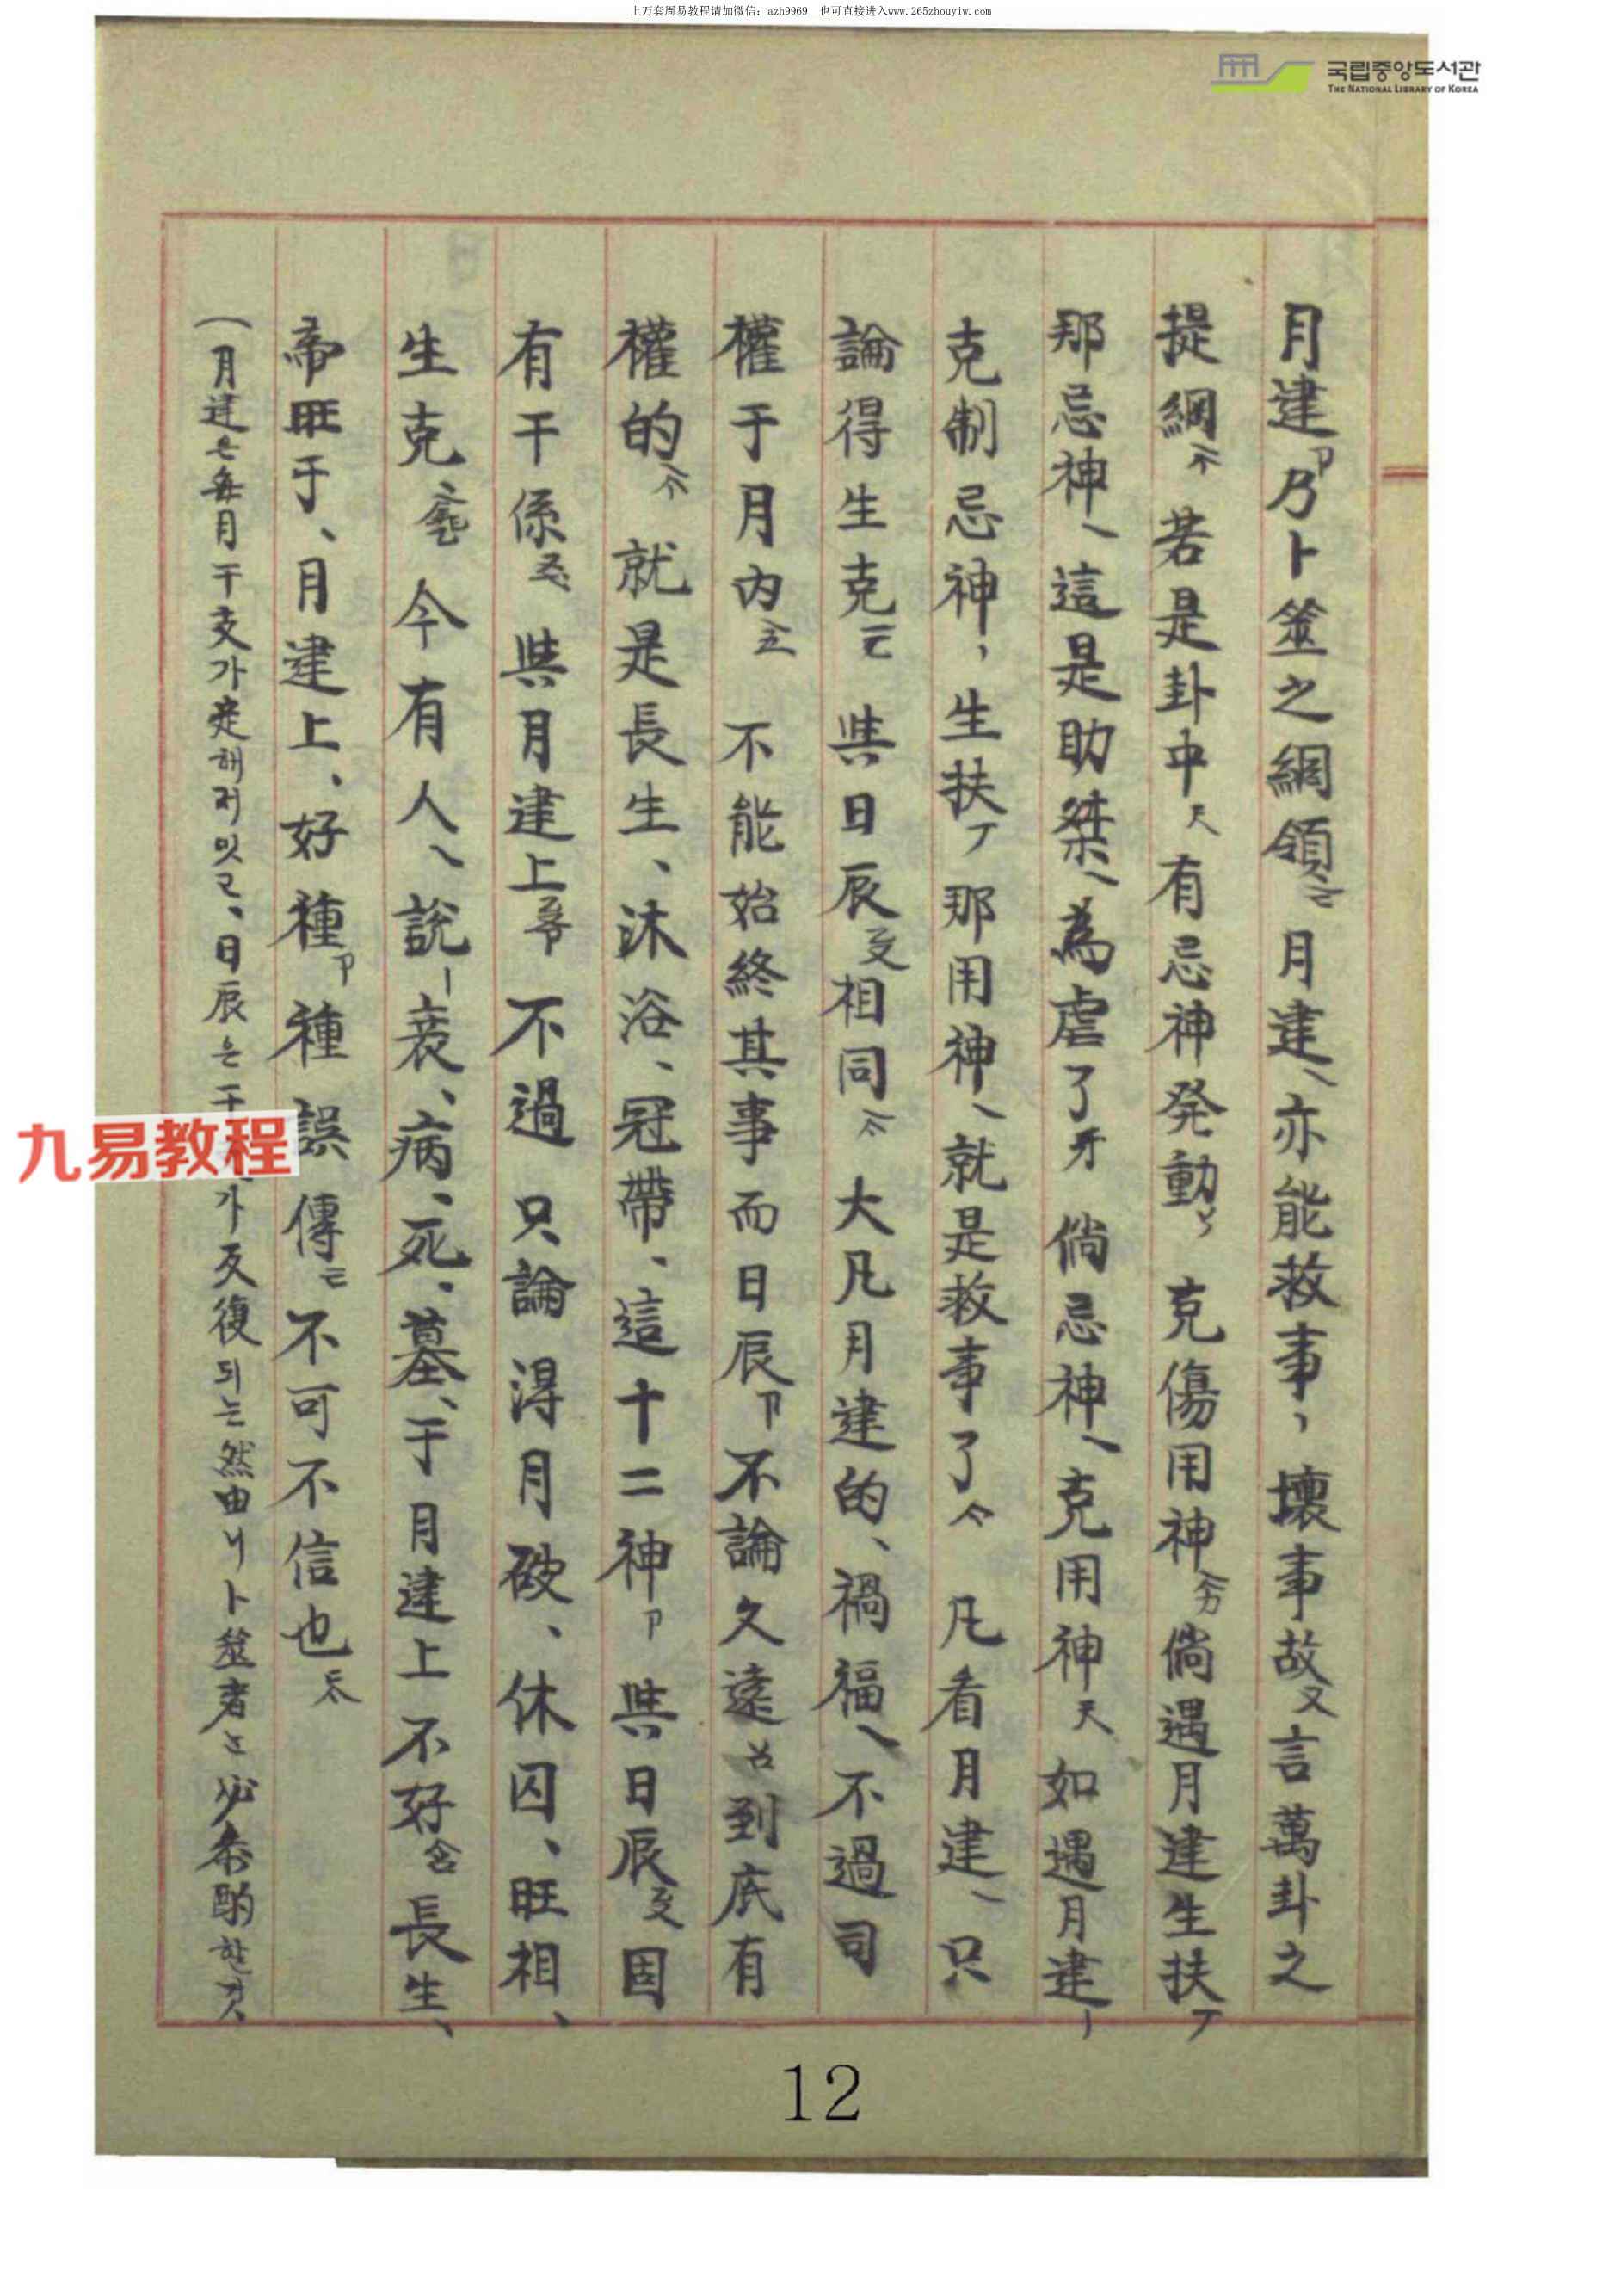 上万套周易教程请加微信：azh9969　也可直接进入www.265zhouyiw.com
국립중앙도서관
THE NATIONAL LIBRARY OF KOREA
月建卩乃卜筮之綱領 月建、亦能救事，壞事故又言萬卦之
提綱 若是卦中天有忌神発動 克傷用神 倘遇月建生扶丆
那忌神、這是助桀、為虐了牙 倘忌神、克用神天如遇月建
克制忌神，生扶丆那用神、就是救事了 凡看月建、只
論得生克 与日辰 相同 大凡月建的、禍福、不過司
權于月內 不能始終其事而日辰卩不論久遠 到底有
權的 就是長生、沐浴、冠帶、這十二神卩 与日辰 因
有干係 与月建上 不過 只論得月破、休囚、旺相、
生克 今有人、説 衰、病、死、墓、于月建上不好 長生、
帝旺于、月建上、好種卩種誤傳 不可不信也
(月建은每月干支가定해져있고、日辰은干 가反復되는然由니卜筮者는必參酌할것
九易教程
12